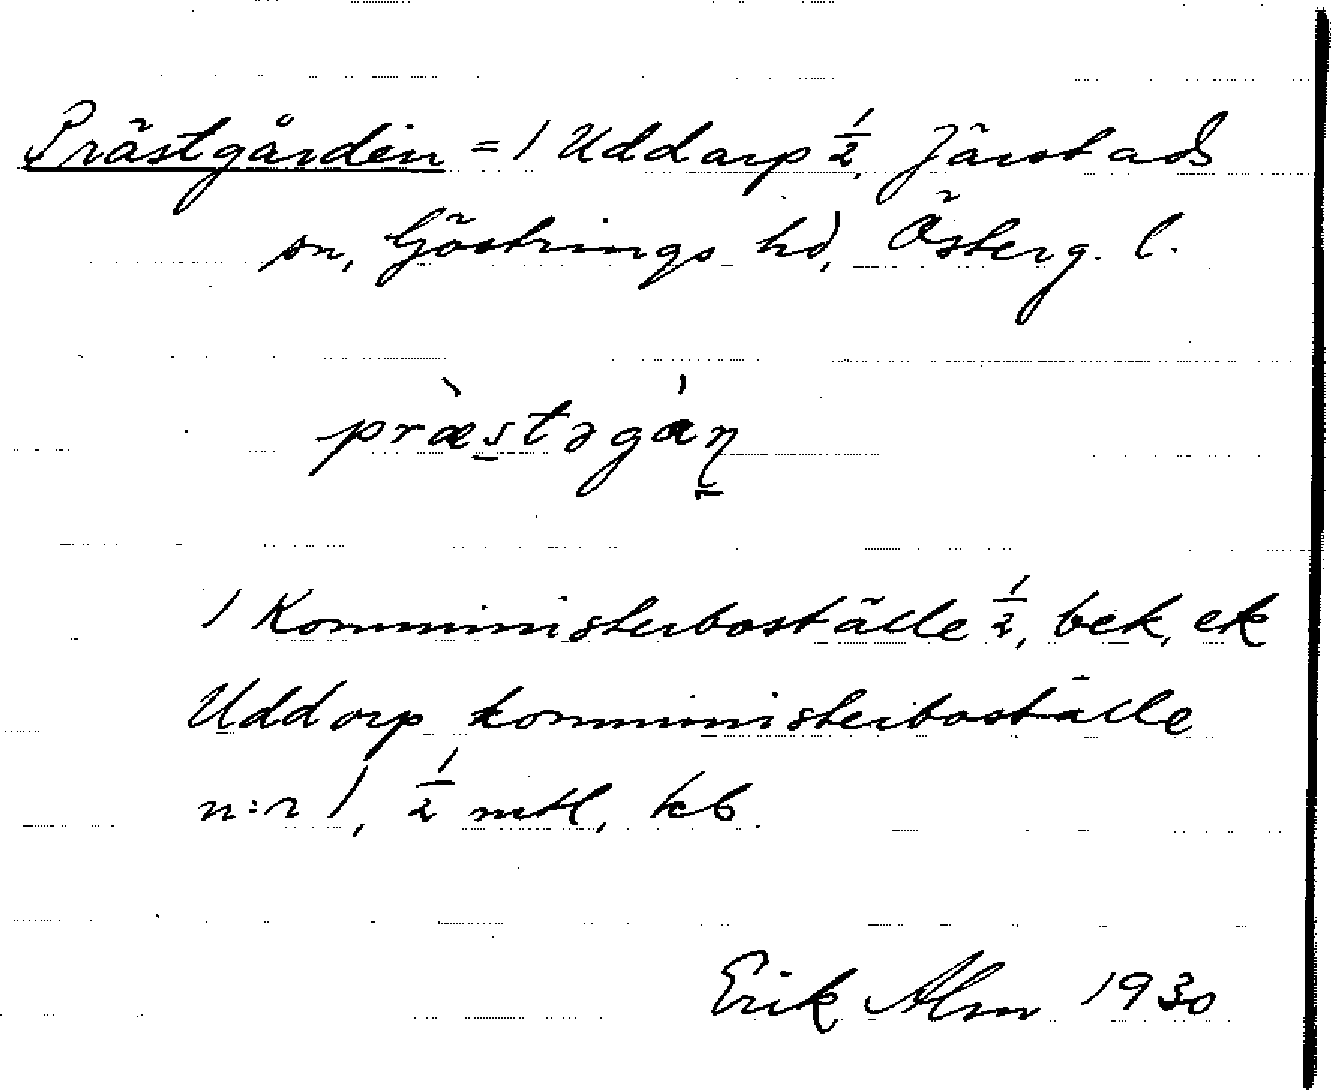 Prästgården = 1 Uddarp 1/2, Järstads
sn, Göstrings hd, Österg. l.
præ̀stəgán
1 Komministerboställe 1/2, bek, ek
Uddorp komministerboställe
n:r 1, 1/2 mtl, kb.
Erik Alm 1930